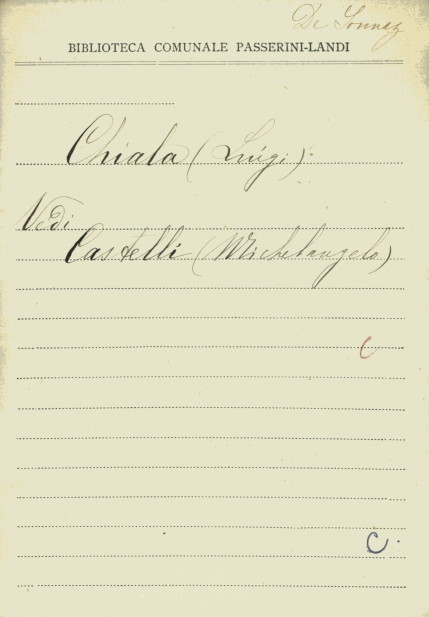 De Sonnaz
BIBLIOTECA COMUNALE PASSERINI-LANDI
Chiala (Luigi)
Vedi
Castelli (Michelangelo)
C
C.